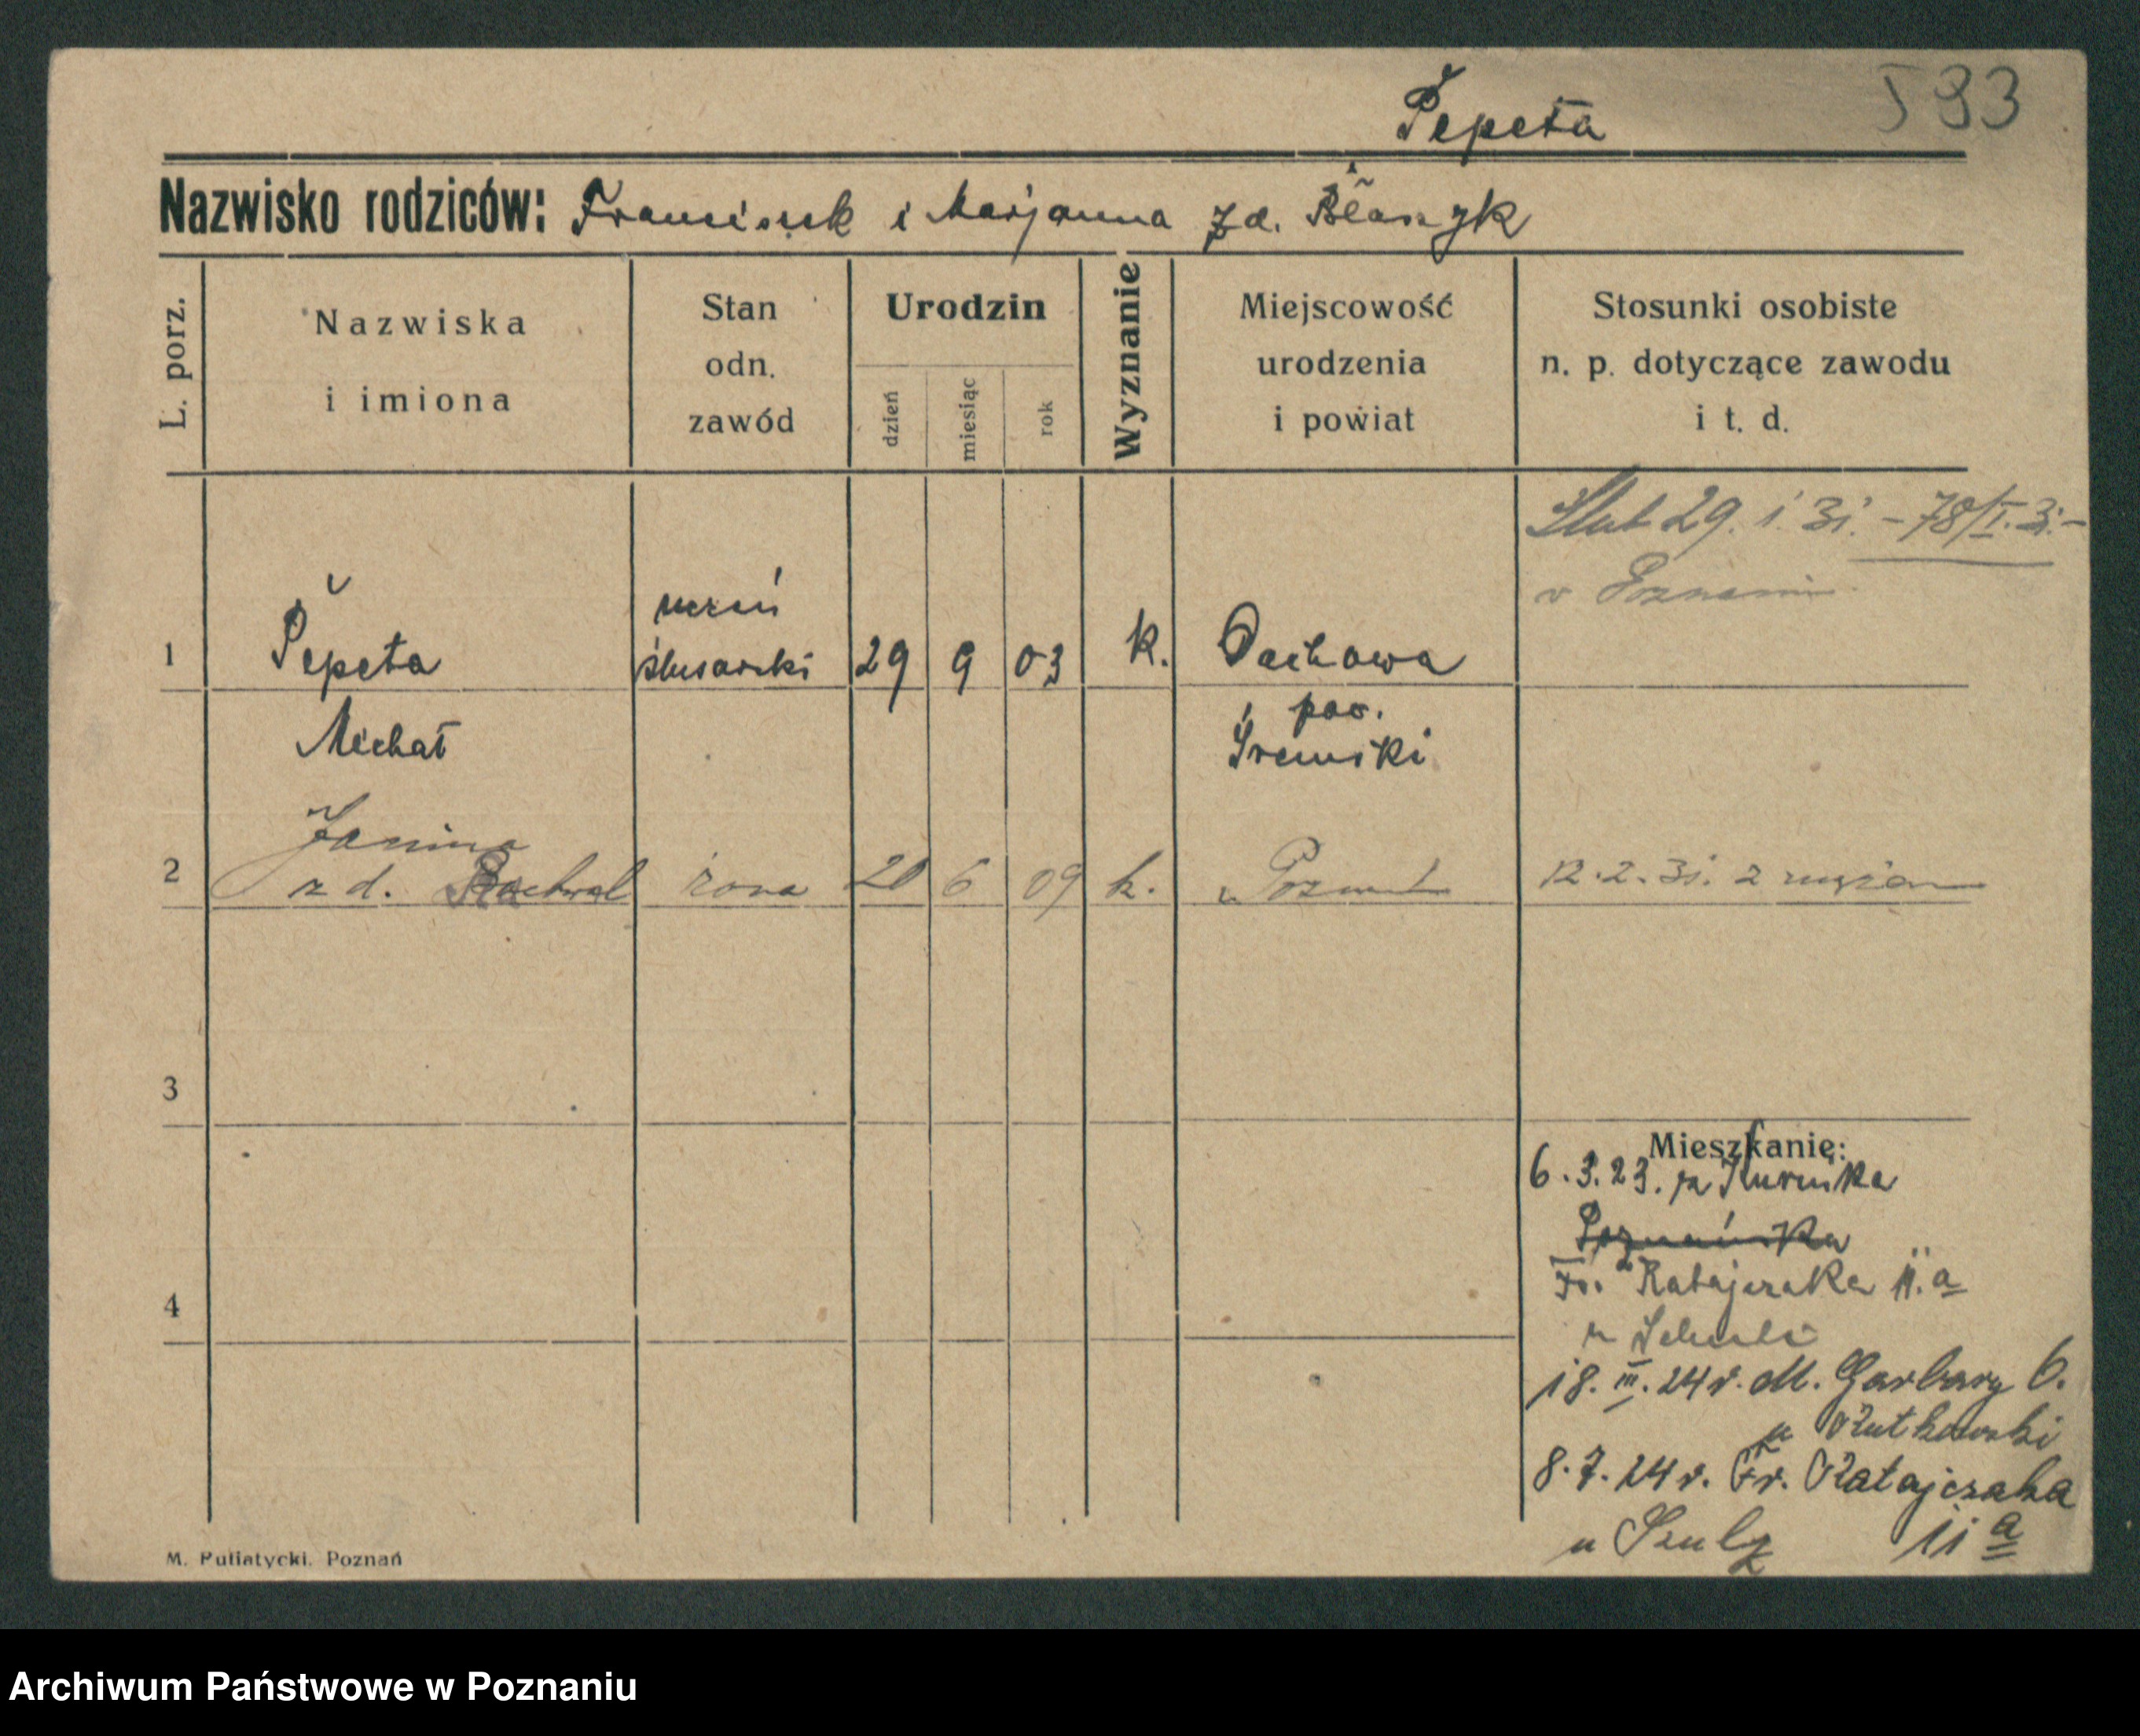 593
Pepeta
Nazwisko rodziców: Franciszek i Marjanna zd. Błaszyk
L. porz.
Nazwiska
i imiona
Stan
odn.
zawód
Urodzin
dzień
miesiąc
rok
Wyznanie
Miejscowość
urodzenia
i powiat
Stosunki osobiste
n. p. dotyczące zawodu
i t. d.
Ślub 29. 1. 31. - 78/I. 31. -
w Poznaniu
1 Pepeta uczeń ślusarski 29 9 03 k. Dachowa
Michał pow.
Śremski
Janina
2 zd. żona 20 6 09 k. 12.2.31. z mężem
3
Mieszkanie:
6.3.23. z Kurnika
Poznańska
4 Fr. Ratajczaka 11.a
18.III.24 r. M. Garbary 6.
u Rutkowski
8.7.24 r. Fr. Ratajczaka
u Szulz 11 a
M. Putiatycki. Poznań
Archiwum Państwowe w Poznaniu